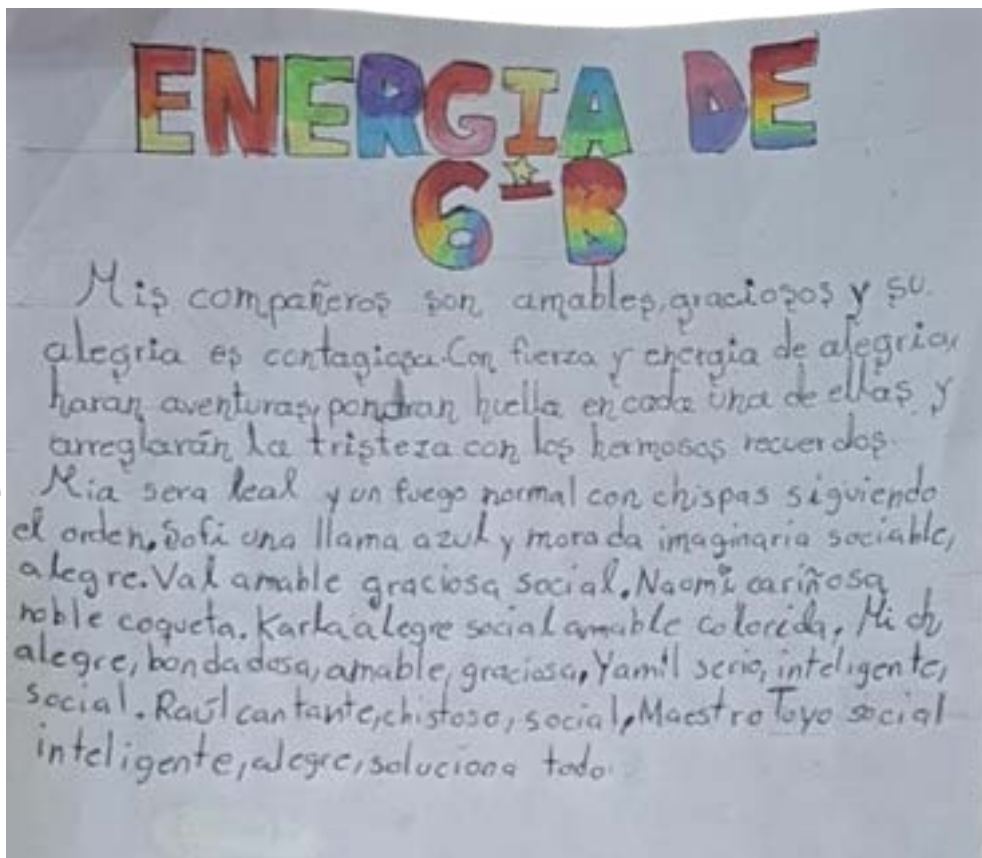 ENERGIA DE
6-B
Mis compañeros son amables, graciosos y su
alegria es contagiosa. Con fuerza y energia de alegria,
haran aventuras, pondran huella en cada una de ellas y
arreglarán la tristeza con los hermosos recuerdos.
Mia sera leal y un fuego normal con chispas siguiendo
el orden. Sofi una llama azul y morada imaginaria sociable,
alegre. Val amable graciosa social. Naomi cariñosa
noble coqueta. Karla alegre social amable colorida. Mich
alegre, bondadosa, amable, graciosa, Yamil serio, inteligente,
social. Raúl cantante, chistoso, social, Maestro Toyo social
inteligente, alegre, soluciona todo.